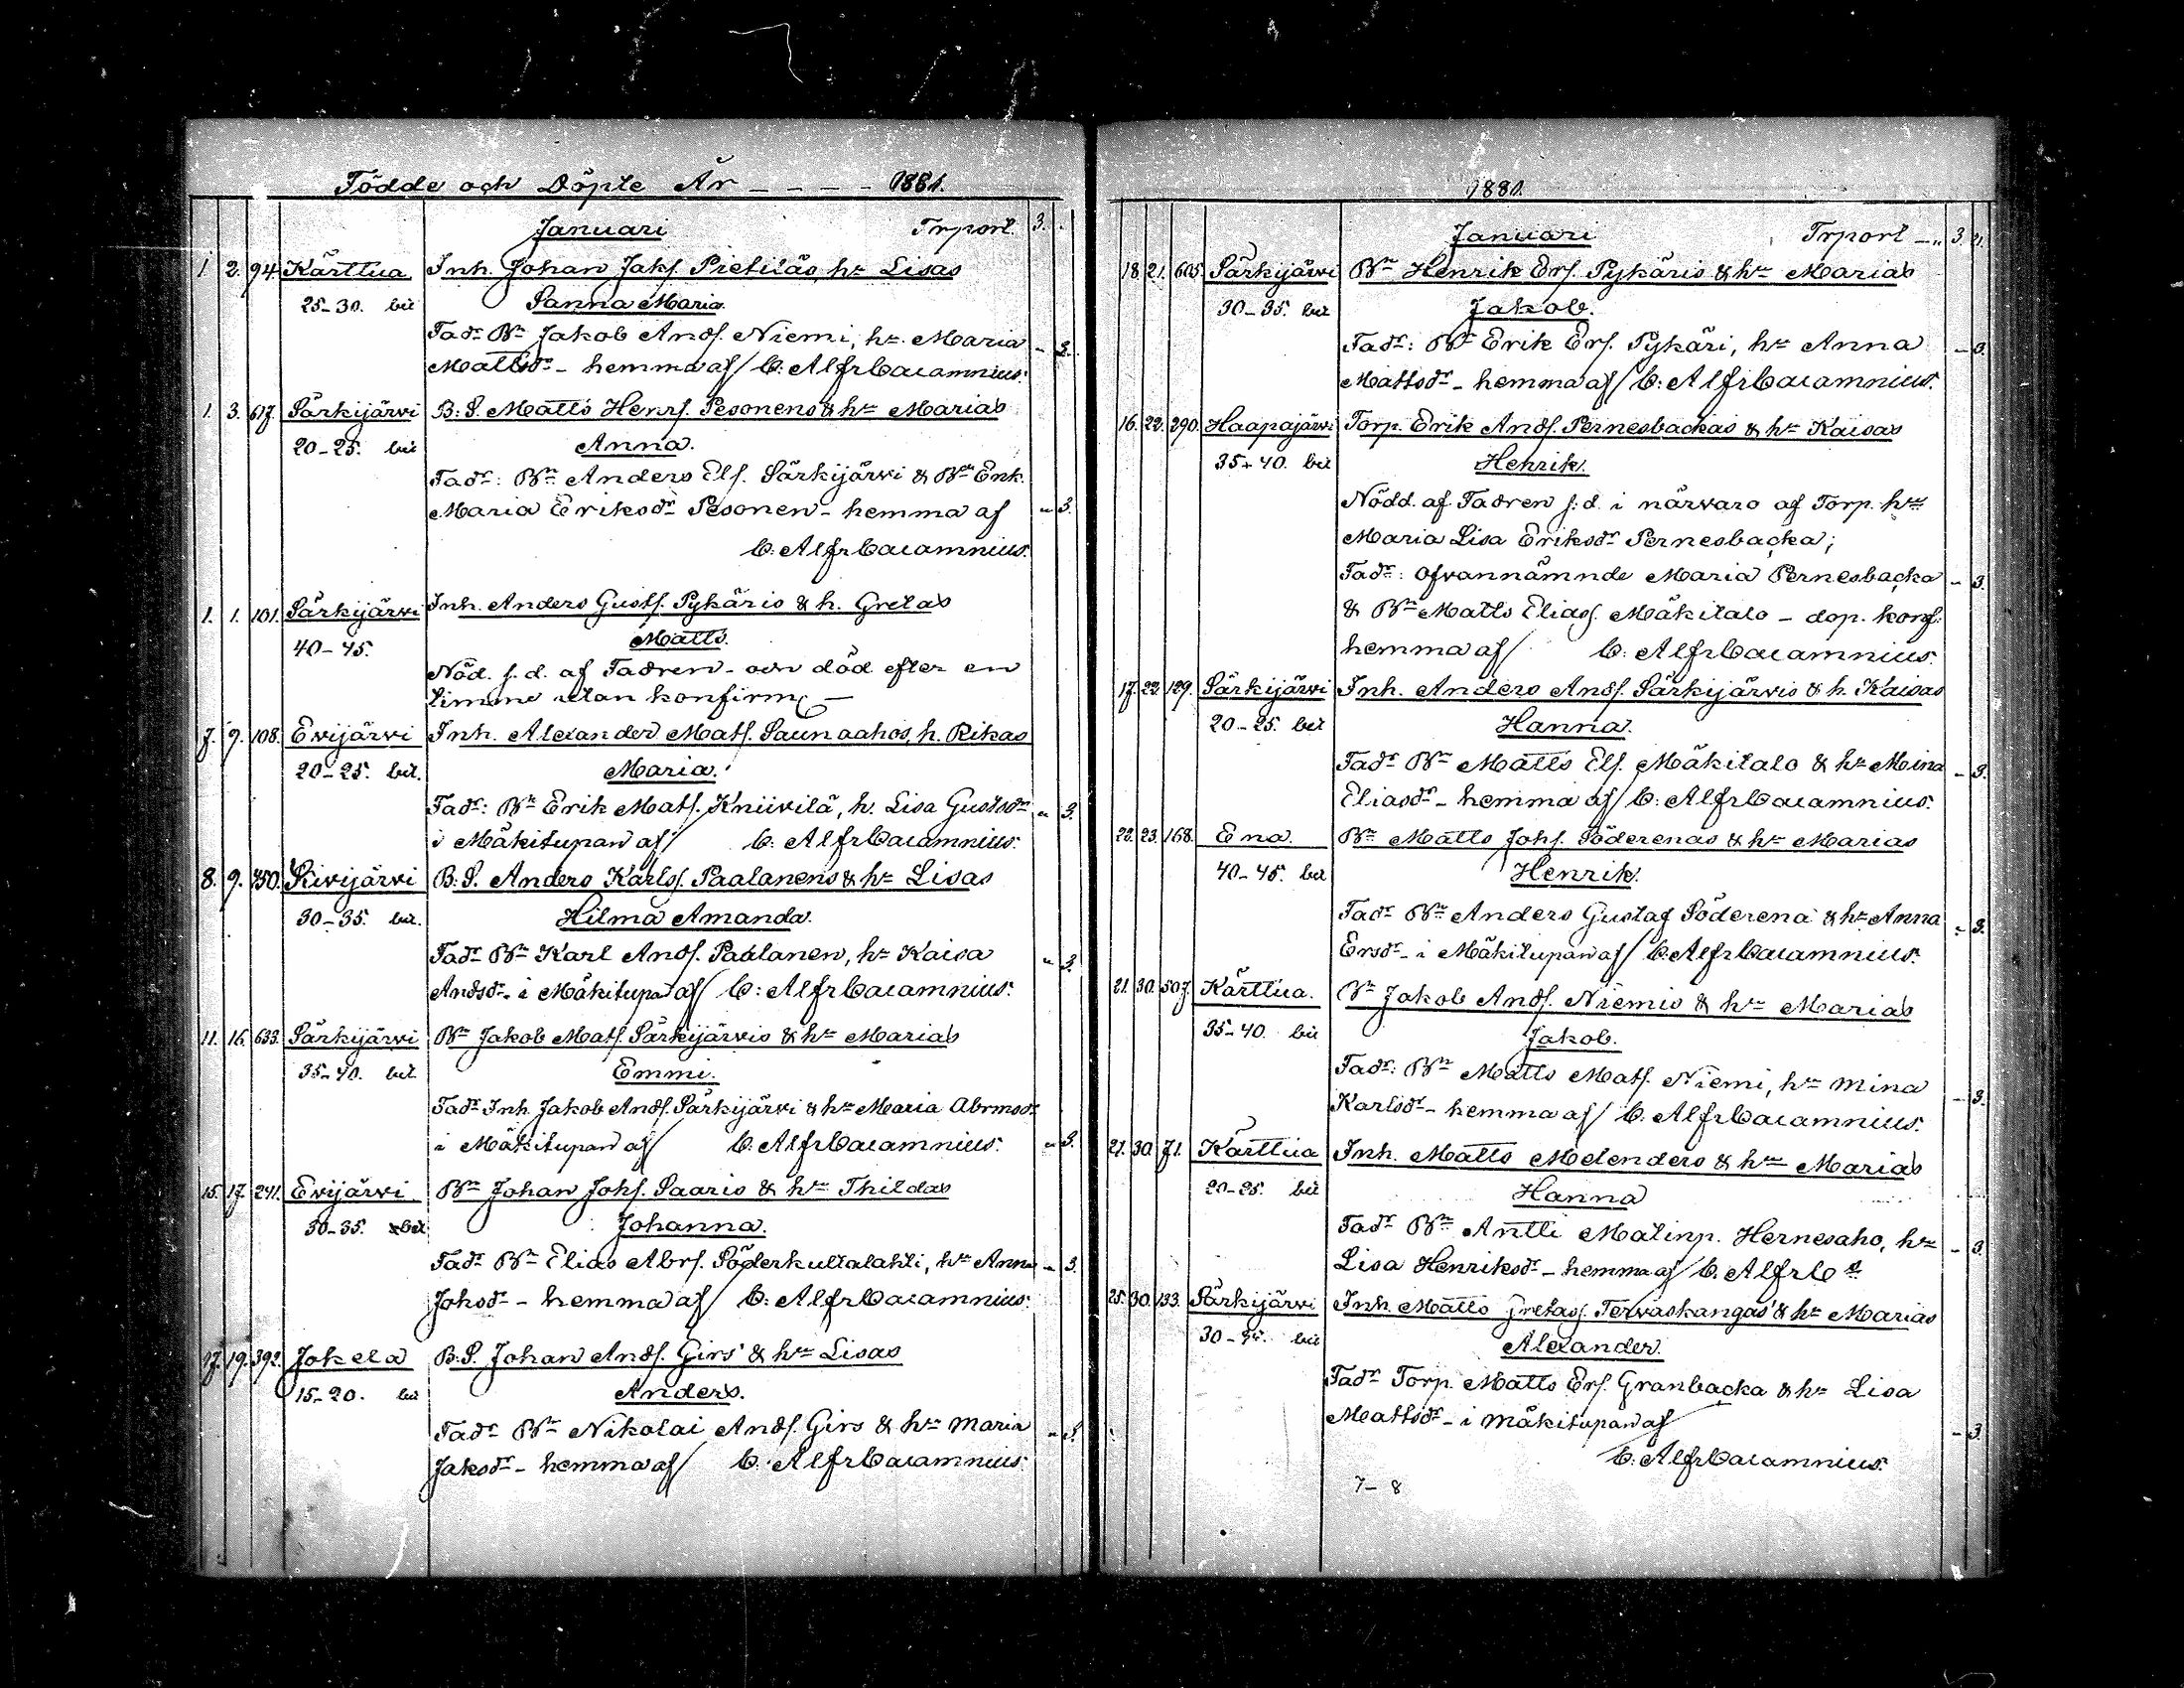 Födde och Döpte År - - - - 1881.
Januari Trport. 3.
1. 2. 94. Kärttua Inh. Johan Jaks. Pietiläs, hr Lisas
25-30. bet Sanna Maria.
Fadr Bn Jakob Ands. Niemi, hr Maria
Mattsdr - hemma af/ C: Alfr Cacamnius. - 3.
1. 3. 617. Särkijärvi B: S. Matts Henrs. Pesonens & hr Marias
20-25. bet Anna.
Fadr: Bn Anders Els. Särkijärvi & Bn Enk.
Maria Eriksdr Pesonen - hemma af - 3.
C: Alfr Cacamnius.
1. 1. 101. Särkijärvi Inh. Anders Gusts. Pykäris & h. Gretas
40-45. Matts.
Nöd. s. d. af Fadren - och död efter en
timme utan konfirm. -
7. 9. 108. Evijärvi Inh. Alexander Mats. Saunaahos, h. Rikas
20-25. bet. Maria.
Fadr: Bn Erik Mats. Kniivilä, h. Lisa Gustsdr - 3.
i Mäkitupan af/ C: Alfr Cacamnius.
8. 9. 750. Kivijärvi B: S. Anders Karls. Paalanens & hr Lisas
30-35. bet. Hilma Amanda.
Fadr Bn Karl Ands. Paalanen, hr Kaisa - 3.
Andsdr - i Mäkitupa af/ C: Alfr Cacamnius.
11. 16. 633. Särkijärvi Bn Jakob Mats. Särkijärvis & hr Marias
35-40. bet. Emmi.
Fadr Inh. Jakob Ands. Särkijärvi & hr Maria Abrmsdr
i Mäkitupan af/ C: Alfr Cacamnius. - 3.
15. 17. 241. Evijärvi Bn Johan Johs. Saaris & hr Thildas
30-35. bet Johanna.
Fadr Bn Elias Abrs. Söderkultalahti, hr Anna - 3.
Johsdr - hemma af/ C: Alfr Cacamnius.
17. 19. 392. Jokela B: S. Johan Ands. Girs' & hr Lisas
15-20. bet Anders.
Fadr Bn Nikolai Ands. Girs & hr Maria - 3.
Jaksdr - hemma af/ C: Alfr Cacamnius.
1881.
Januari Trport - " 3.
18. 21. 605. Särkijärvi Bn Henrik Ers. Pykäris & hr Marias
30-35. bet Jakob.
Fadr: Bn Erik Ers. Pykäri, hr Anna - 3.
Mattsdr - hemma af/ C: Alfr Cacamnius.
16. 22. 290. Haapajärvi Torp. Erik Ands. Pernesbackas & hr Kaisas
35-40. bet Henrik.
Nödd. af Fadren s: d. i närvaro af Torp. hr
Maria Lisa Eriksdr Pernesbacka;
Fadr: ofvannämnde Maria Pernesbacka - 3.
& Bn Matts Elias. Mäkitalo - dop. konf:
hemma af/ C: Alfr Cacamnius.
17. 22. 129. Särkijärvi Inh. Anders Ands. Särkijärvis & h. Kaisas
20-25. bet Hanna.
Fadr Bn Matts Els. Mäkitalo & hr Mina - 3.
Eliasdr - hemma af/ C: Alfr Cacamnius.
22. 23. 168. Ena. Bn Matts Johs. Söderenas & hr Marias
40-45. bet Henrik.
Fadr Bn Anders Gustaf Söderena & hr Anna - 3.
Ersdr - i Mäkitupan af/ C: Alfr Cacamnius.
21. 30. 507. Kärttua. Bn Jakob Ands. Niemis & hr Marias
35-40. bet Jakob.
Fadr: Bn Matts Mats. Niemi, hr Mina - 3.
Karlsdr - hemma af/ C: Alfr Cacamnius.
21. 30. 71. Kärttua Inh. Matts Melenders & hr Marias
20-25. bet Hanna
Fadr Bn Antti Matinp. Hernesaho, hr - 3.
Lisa Henriksdr - hemma af/ C. Alfr C s
25. 30. 133. Särkijärvi Inh. Matts Gretas. Tervaskangas' & hr Marias
30-35. bet Alexander.
Fadr Torp. Matts Ers. Granbacka & hr Lisa
Mattsdr - i mäkitupan af/ - 3.
C: Alfr Cacamnius.
7 - 8